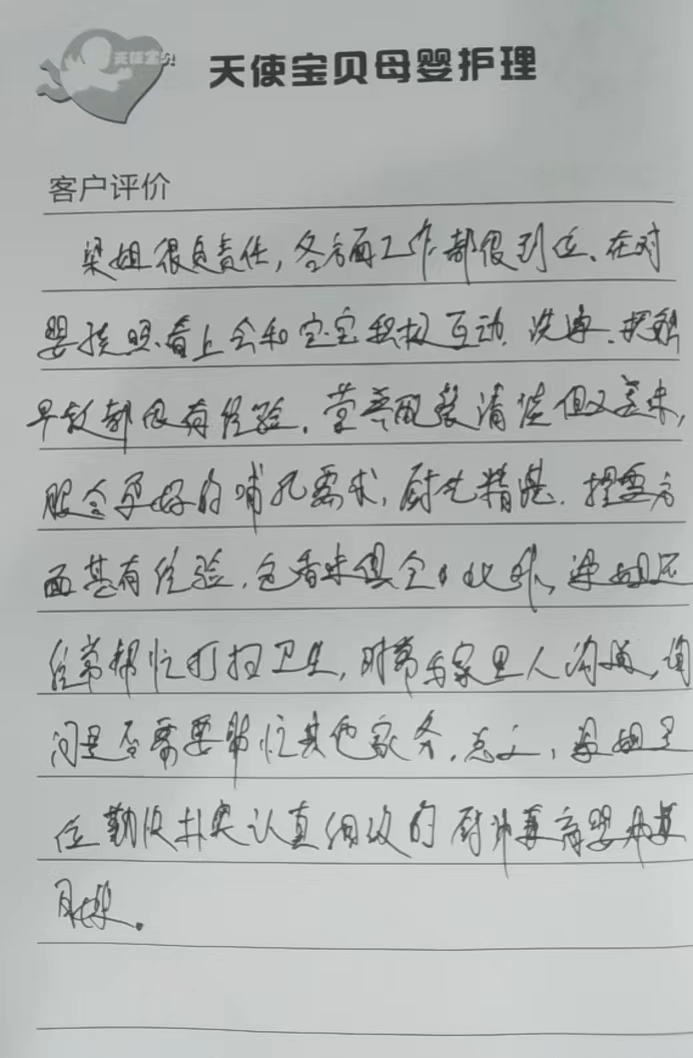 天使宝贝
天使宝贝母婴护理
客户评价
梁姐很负责任,各方面工作都很到位、在对
婴孩照看上会和宝宝积极互动.洗澡、抚触
早教都很有经验.营养配餐清淡但又美味,
配合更好的哺乳需求,厨艺精湛.
面甚有经验,色香味俱全。此外、梁姐还
经常帮忙打扫卫生,时常与家里人沟通,询
问是否需要帮忙其他家务.总之,梁姐是
位勤快朴实认真细致的厨师兼育婴师兼
月嫂.